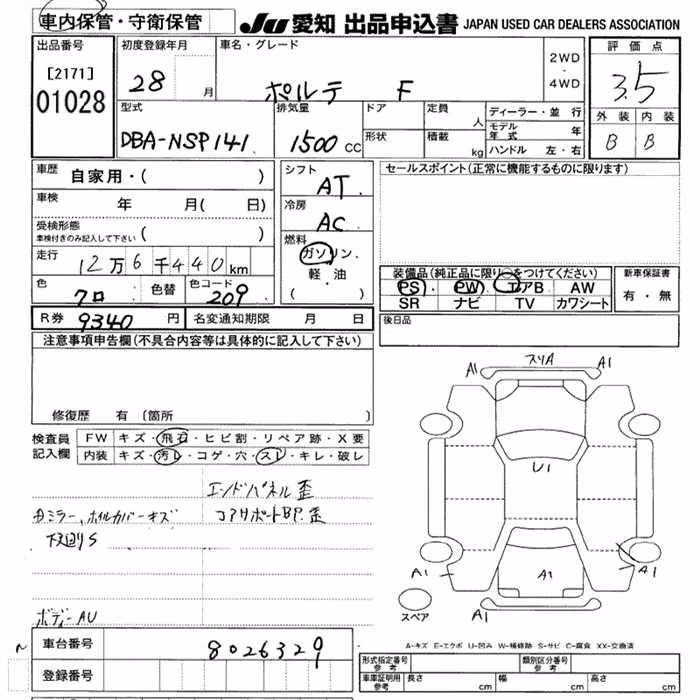 車内保管・守衛保管
JU 愛知 出品申込書 JAPAN USED CAR DEALERS ASSOCIATION
出品番号
[2171]
01028
初度登録年月
28 月
車名・グレード
ポルテ F
2WD
・
4WD
評価点
3.5
外装 内装
B B
型式
DBA-NSP141
排気量
1500 CC
ドア
形状
定員 人
積載 kg
ディーラー・並行
モデル年式 年
ハンドル 左・右
車歴
自家用・( )
車検 年 月( 日)
受検形態
車検付きのみ記入して下さい ( )
走行
12万6千440km
色
クロ
色替
色コード
209
シフト
AT
冷房
AC
燃料
ガソリン
軽・油
( )
セールスポイント(正常に機能するものに限ります)
装備品(純正品に限り○をつけてください)
PS PW エアB AW
SR ナビ TV カワシート
新車保証書
有・無
R券 9340 円 名変通知期限 月 日
後日品
注意事項申告欄(不具合内容等は具体的に記入して下さい)
修復歴 有 〔箇所 〕
検査員記入欄
FW キズ・飛石・ヒビ割・リペア跡・X要
内装 キズ・汚レ・コゲ・穴・スレ・キレ・破レ
エンドパネル歪
カミラー、ホイルカバーキズ
コアサポートBP.歪
下廻りS
ボディーAU
A1 スリA A1
U1
A1
A1 A1
A1
スペア
A-キズ E-エクボ U-凹み W-補修跡 S-サビ C-腐食 XX-交換済
車台番号
8026329
登録番号
形式指定番号
参考
類別区分番号
参考
車庫証明用
参考
長さ cm 幅 cm 高さ cm